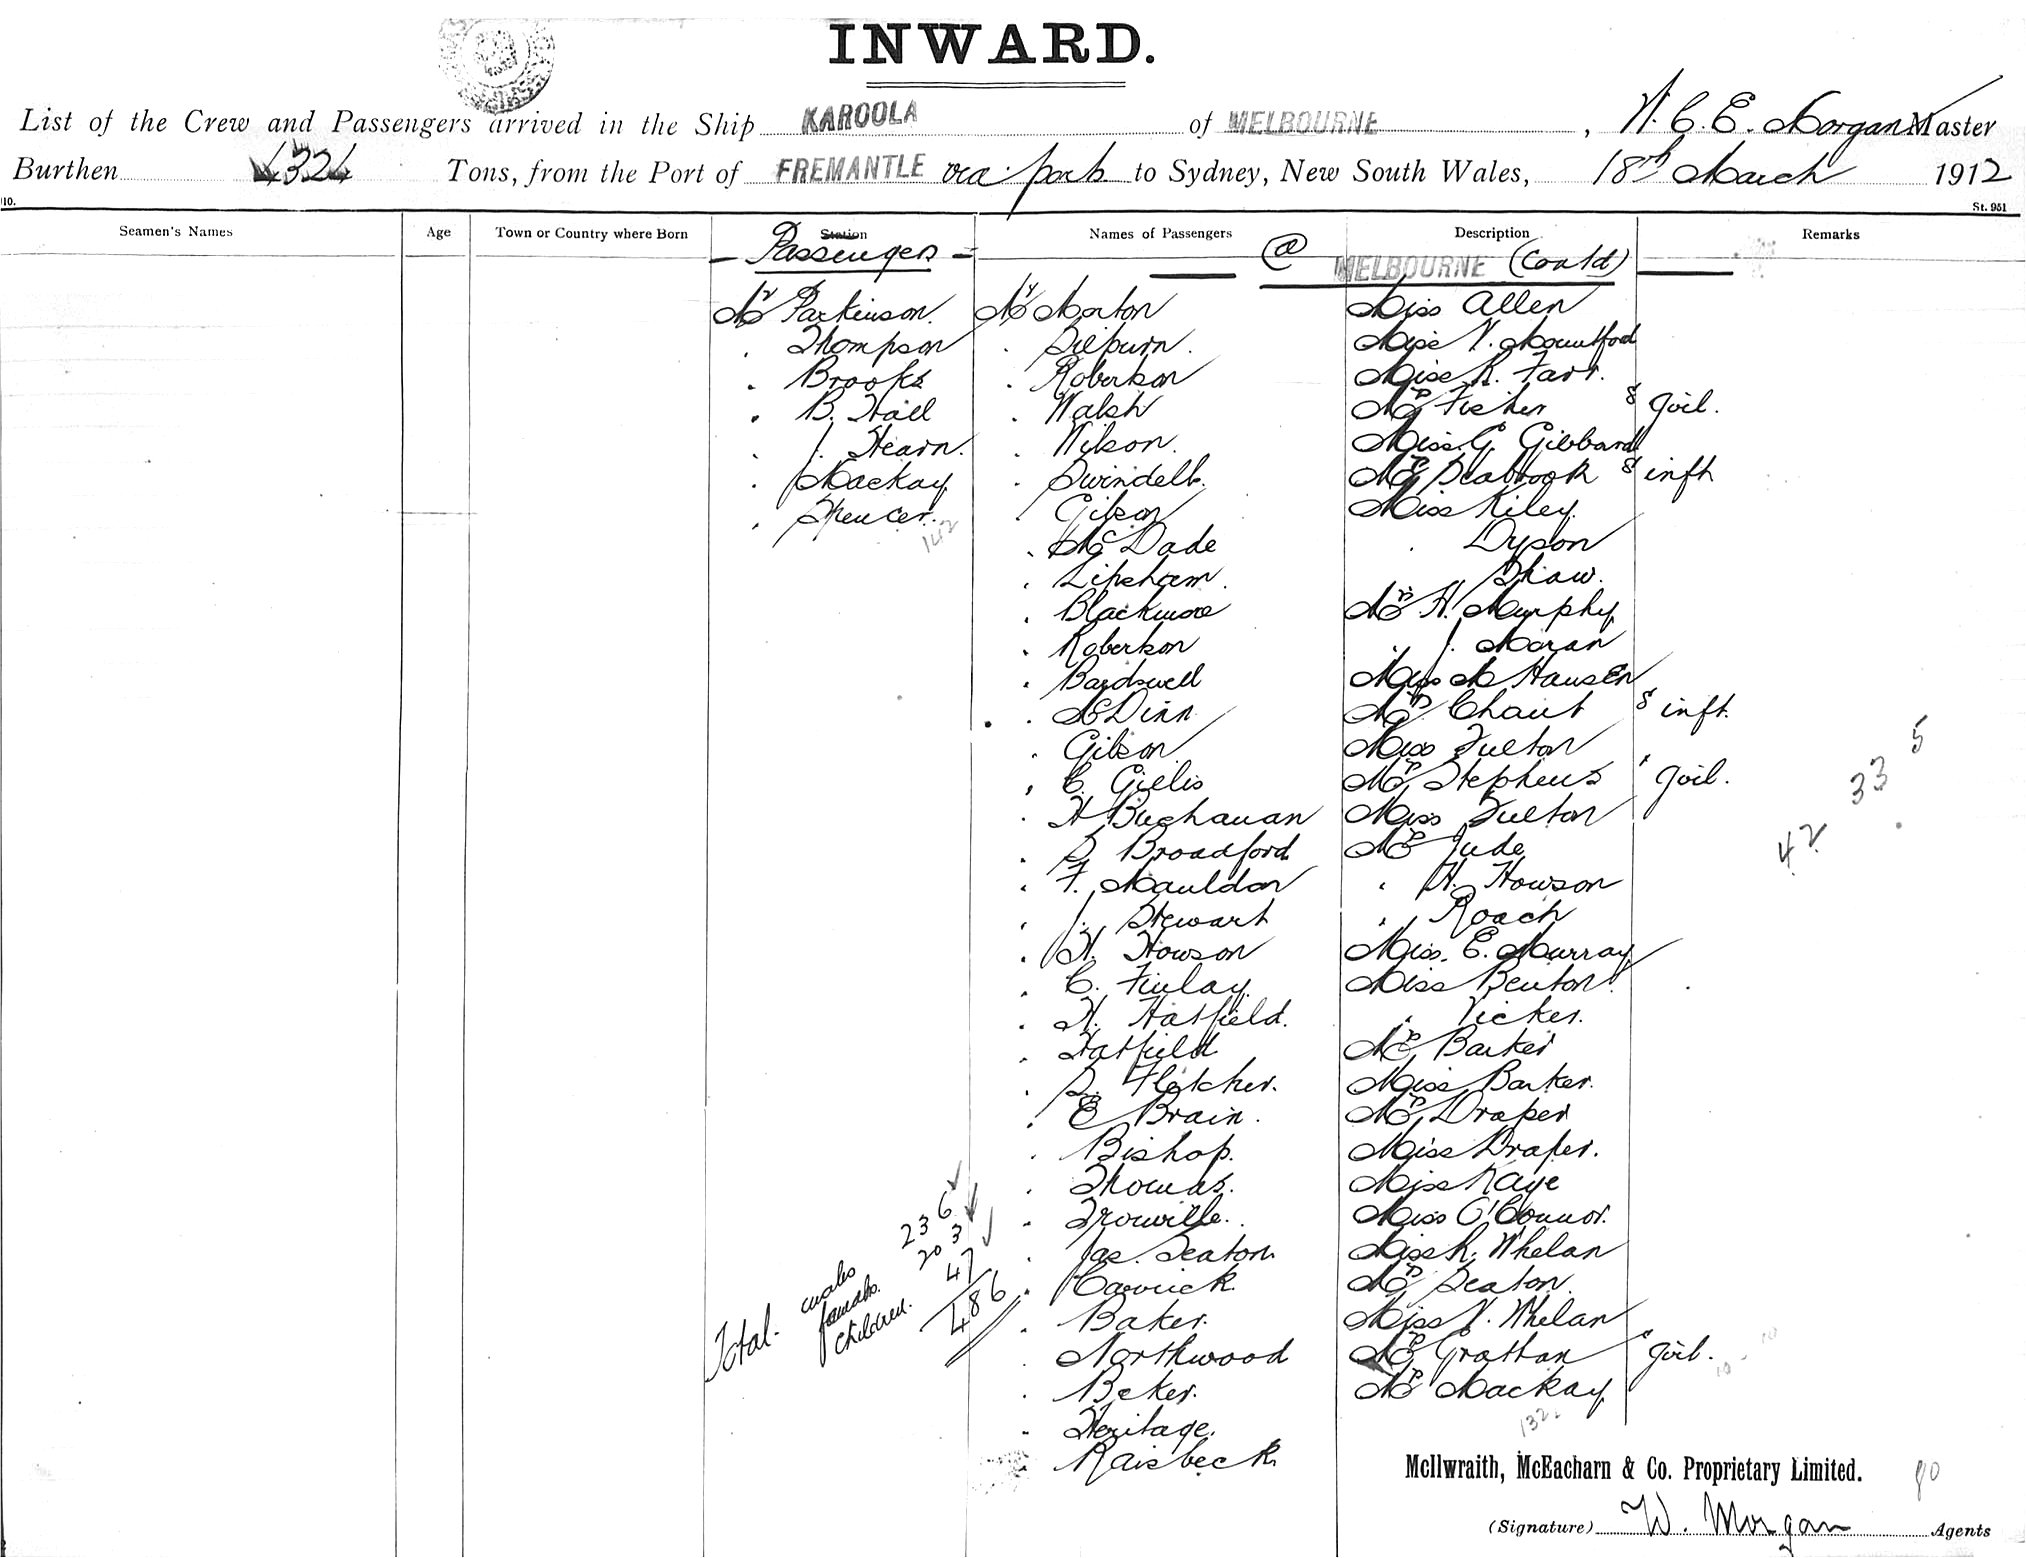 INWARD.
List of the Crew and Passengers arrived in the Ship KAROOLA of MELBOURNE, W. C. E. Morgan Master
Burthen 4324 Tons, from the Port of FREMANTLE via ports to Sydney, New South Wales, 18th March 1912
10. St. 951
Seamen's Names Age Town or Country where Born Station Names of Passengers Description Remarks
- Passengers - @ MELBOURNE (Contd)
Mr Parkinson. Mr Morton Miss Allen
. Thompson . Milburn. Miss V. Mountford
. Brooks . Robertson Miss R. Farr.
. B. Hall . Walsh Mrs Fisher & girl.
. J. Hearn. . Wilson. Miss G. Gibbard
. Mackay . Swindells. Mrs Seabrook & inft
. Spencer. . Gibson Miss Kiley.
142
. McDade . Dyson
. Lipsham. Shaw.
. Blackmore Mrs H. Murphy
. Robertson . J. Moran
. Bardswell Miss M Hansen
. McDinn Mrs Chaut & inft.
. Gibson Miss Fulton
. C. Gillis Mrs Stephens & girl.
. H Buchanan Miss Fulton
. S. Broadford Mrs Jude
. F. Mauldon . H. Howson
. J. Stewart . Roach
. H. Howson Miss. E. Murray
. C. Finlay. Miss Benton.
. H. Hatfield. . Vicker.
. Hatfield Mrs Barker
. S. Fletcher. Miss Barker.
. E Brain. Mrs Draper
. Bishop. Miss Draper.
. Thomas. Miss Kaye
. Trouville. Miss O'Connor.
. Jas. Seaton. Miss R. Whelan
. Carrick. Mrs Seaton.
. Baker. Miss V. Whelan
. Northwood Mrs Grattan & girl.
. Beker. Mrs Mackay
. Heritage.
. Raisbeck.
42 33 5
Total. males 236
females. 203
children. 47
486
132.
McIlwraith, McEacharn & Co. Proprietary Limited.
(Signature) W. Morgan Agents